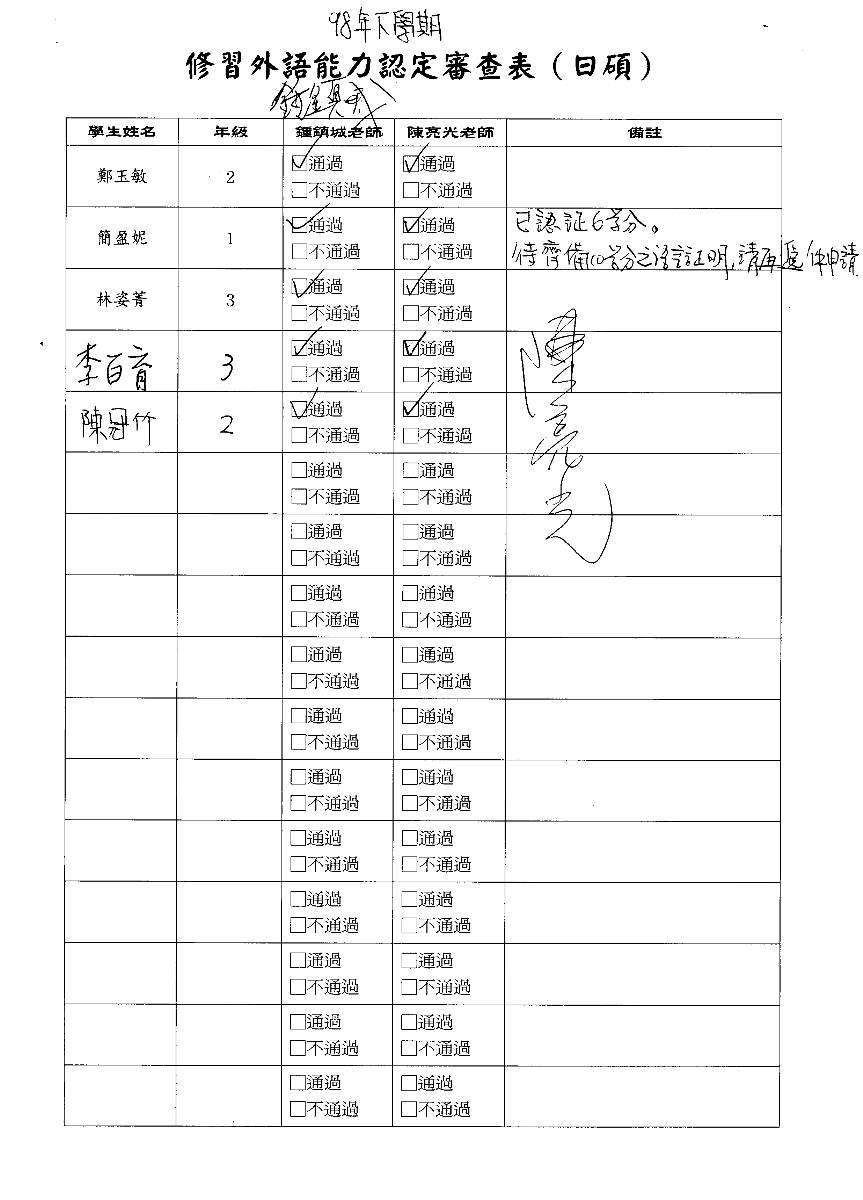 98年下學期
修習外語能力認定審查表（日碩）
鍾鎮城
學生姓名 年級 鍾鎮城老師 陳亮光老師 備註
鄭玉敏 2 ☑通過 ☑通過
□不通過 □不通過
簡盈妮 1 ☑通過 ☑通過 已認証6學分。
□不通過 □不通過 待齊備10學分之語言証明,請再遞件申請
林姿菁 3 ☑通過 ☑通過
□不通過 □不通過
李百育 3 ☑通過 ☑通過
□不通過 □不通過
陳冠竹 2 ☑通過 ☑通過
□不通過 □不通過
陳亮光
□通過 □通過
□不通過 □不通過
□通過 □通過
□不通過 □不通過
□通過 □通過
□不通過 □不通過
□通過 □通過
□不通過 □不通過
□通過 □通過
□不通過 □不通過
□通過 □通過
□不通過 □不通過
□通過 □通過
□不通過 □不通過
□通過 □通過
□不通過 □不通過
□通過 □通過
□不通過 □不通過
□通過 □通過
□不通過 □不通過
□通過 □通過
□不通過 □不通過